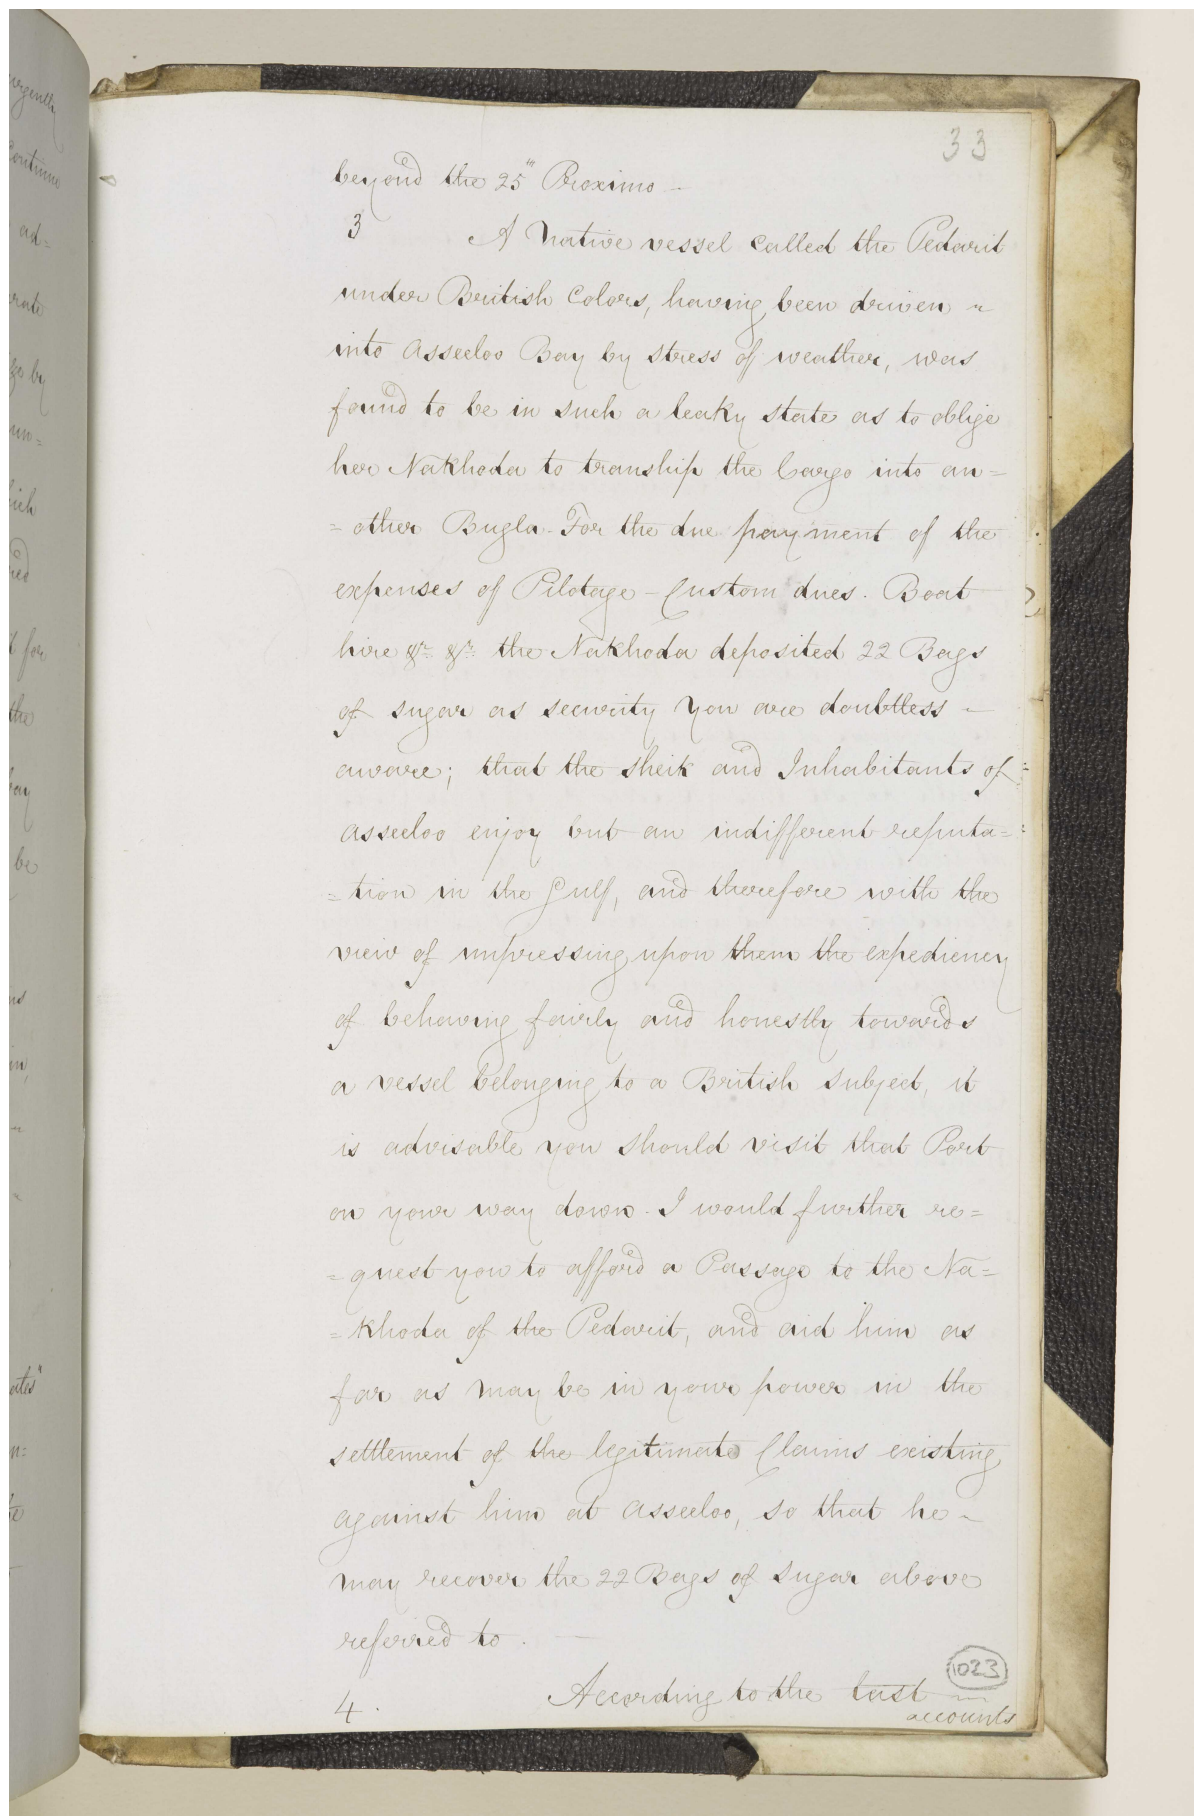 33
beyond the 25th Proximo —
3 A Native vessel called the Pedarit
under British Colors, having been driven
into Asseeloo Bay by stress of weather, was
found to be in such a leaky state as to oblige
her Nakhoda to tranship the Cargo into an=
=other Bugla. For the due payment of the
expenses of Pilotage – Custom dues. Boat
hire &c &c the Nakhoda deposited 22 Bags
of sugar as security you are doubtless
aware; that the Sheik and Inhabitants of
Asseeloo enjoy but an indifferent reputa=
=tion in the Gulf, and therefore with the
view of impressing upon them the expediency
of behaving fairly and honestly towards
a vessel belonging to a British subject, it
is advisable you should visit that Port
on your way down. I would further re=
=quest you to afford a Passage to the Na=
=khoda of the Pedarit, and aid him as
far as may be in your power in the
settlement of the legitimate Claims existing
against him at Asseeloo, so that he
may recover the 22 Bags of Sugar above
referred to. —
4. According to the last
accounts
1023